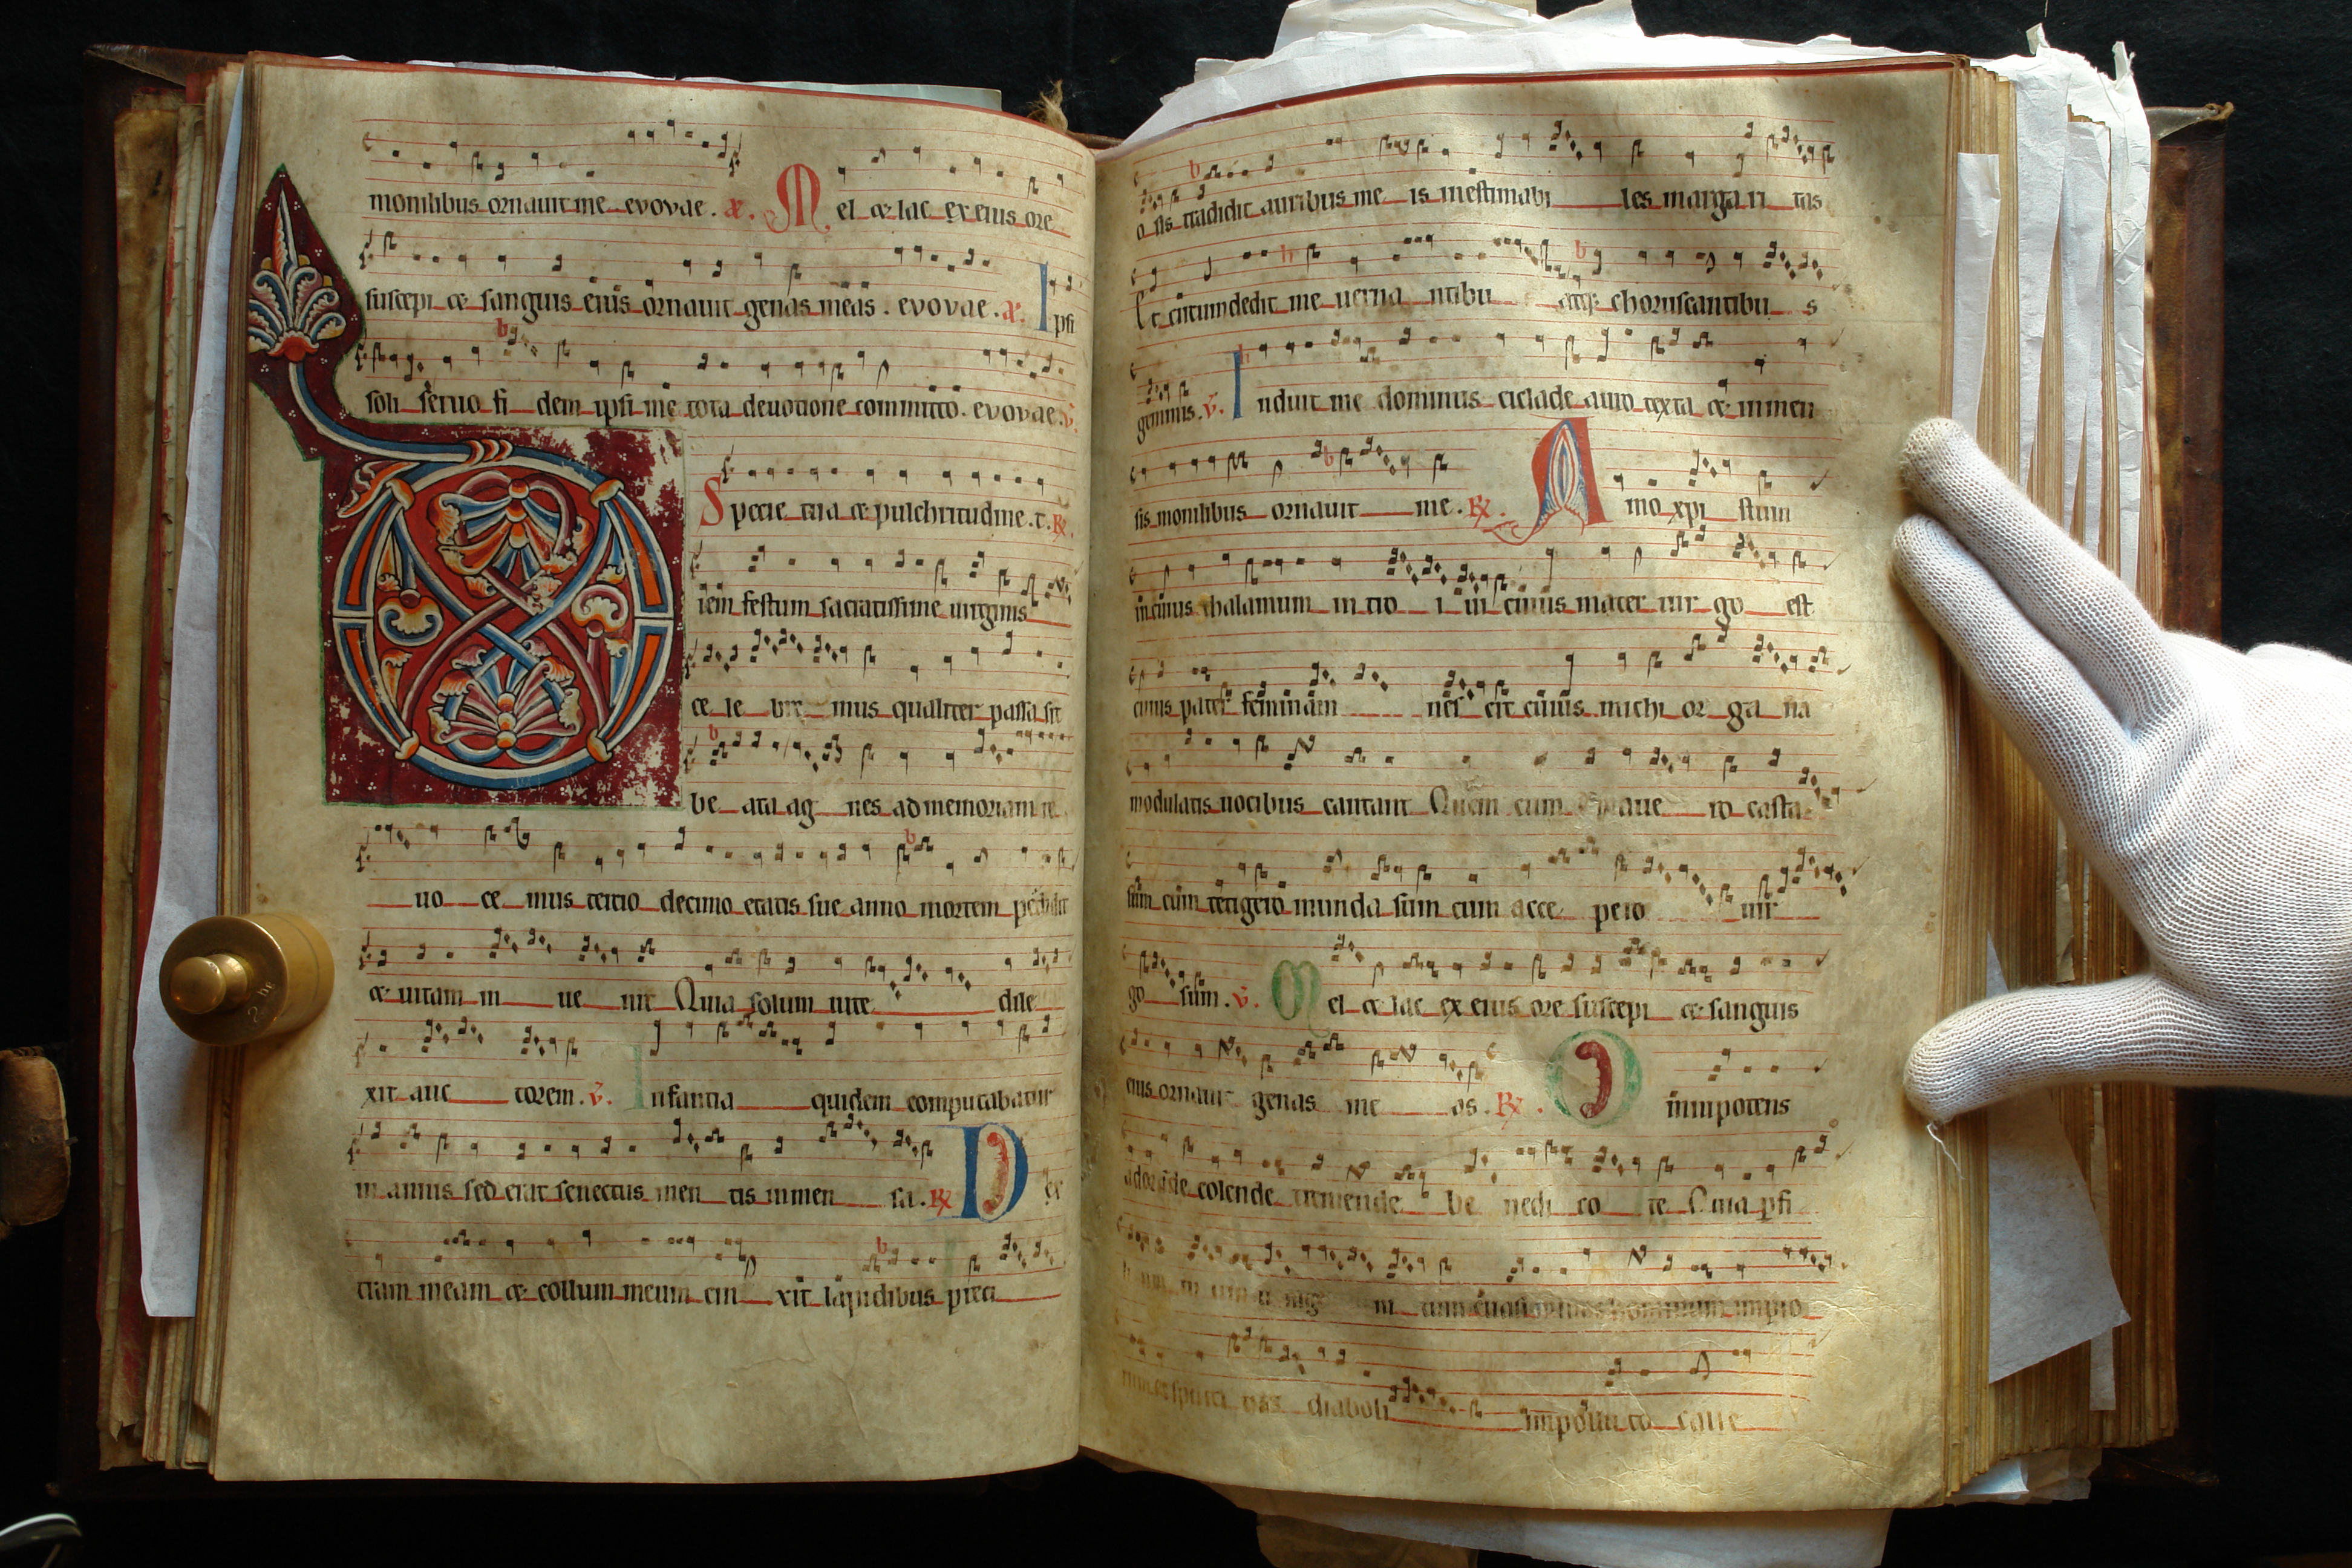 monilibus ornauit me evovae. a. Mel et lac ex eius ore
suscepi et sanguis eius ornauit genas meas. evovae. a. Ipsi
soli seruo fidem ipsi me tota deuotione committo. evovae. v.
Specie tua et pulchritudine. t. R.
Diem festum sacratissime uirginis
ce le bre mus qualiter passa sit
be ata ag nes ad memoriam re
uo ce mus tertio decimo etatis sue anno mortem perdidit
et uitam in ue nit Quia solum uite dile
xit auc torem. v. Infantia quidem computabatur
in annis sed erat senectus men tis inmen sa. R. Dex
tram meam et collum meum cin xit lapidibus preci
o sis tradidit auribus me is inestimabi les margari tas
Et circumdedit me uerna ntibu atque choruscantibu s
gemmis. v. Induit me dominus ciclade auro texta et inmen
sis monilibus ornauit me. R. Amo xpi stum
in cuius thalamum in tro i ui cuius mater uir go est
cuius pater feminam nes cit cuius michi or ga na
modulatis uocibus cantant Quem cum amaue ro casta
sum cum tetigero munda sum cum acce pero uir
go sum. v. Mel et lac ex eius ore suscepi et sanguis
eius ornauit genas me as. R. Omnipotens
adorande colende tremende be nedi co te Quia
hominum impio
diaboli impolluto calle